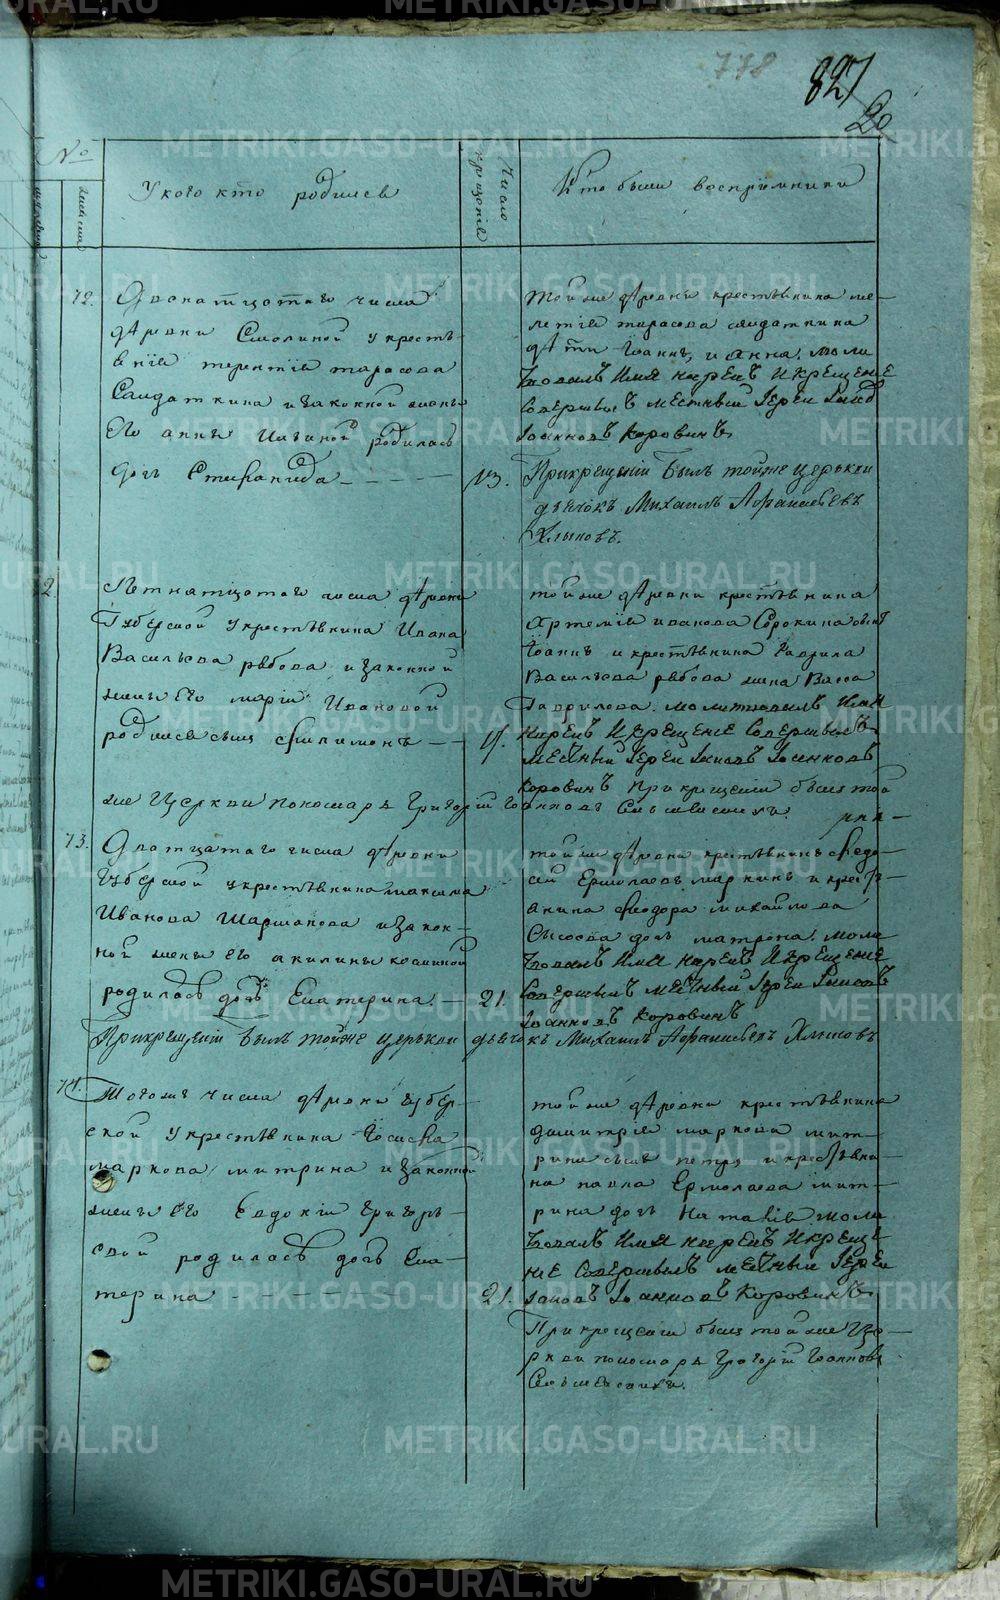 778
827
20
№
мужеска
женска
У кого кто родился
Число крещенiя
Кто были восприемники
72.
Двенатцатаго числа
дѣревни Смолиной у кресть-
янина терентiя тарасова
Солдаткина и законной жены
Его анны Ильиной родилась
дочь Стефанида
13.
тойже дѣревни крестьянина ме-
летiя тарасова солдаткина
дѣти Iоаннъ, и Анна. моли
твовалъ Имя нарекъ И крещение
совершилъ мѣстный Iерей Iаковъ
Iоанновъ Коровинъ
При крещенiи былъ тойже церькви
дьячокъ Михаилъ Афанасьевъ
Хлыновъ.
2
Пятнатцатаго числа дѣревни
Губерской у крестьянина Ивана
Васильева рябова и законной
жены Его марiи Ивановой
родился сынъ филимонъ
17.
тойже дѣревни крестьянина
Артемiя иванова Сорокина сынъ
Iоаннъ и крестьянина Гаврила
Васильева рябова жена Васса
Гаврилова. молитвовалъ Имя
нарекъ И крещение совершилъ
мѣстный Iерей Iаковъ Iоанновъ
Коровинъ При крещенiи былъ той
же Церкви пономарь Григорiй Iоанновъ
73.
Дватцатаго числа дѣревни
Губерской у крестьянина максима
Иванова Шарманова и закон-
ной жены его акилины козминой
родилась дочь Екатерина
21.
тойже дѣревни крестьянинъ федо-
сей Ермолаевъ маркинъ и кресть-
янина феодора михайлова
Сысоева дочь матрона. моли
твовалъ Имя нарекъ И крещение
совершилъ мѣстный Iерей Iаковъ
Iоанновъ Коровинъ
При крещенiи былъ тойже церькви дьячокъ Михаилъ Афанасьевъ Хлыновъ
74.
Тогоже числа дѣревни Губер-
ской у крестьянина Iосифа
маркова митрина и законной
жены его Евдокiи Григорь-
евой родилась дочь Ека-
терина
21.
тойже дѣревни крестьянина
димитрiя маркова мит-
рина сынъ петръ и крестьяни-
на павла Ермолаева мит-
рина дочь Наталiя моли
твовалъ Имя нарекъ И креще
ние совершилъ мѣстный Iерей
Iаковъ Iоанновъ Коровинъ
При крещенiи былъ тойже Це-
ркви пономарь Григорiй Iоанновъ
METRIKI.GASO-URAL.RU